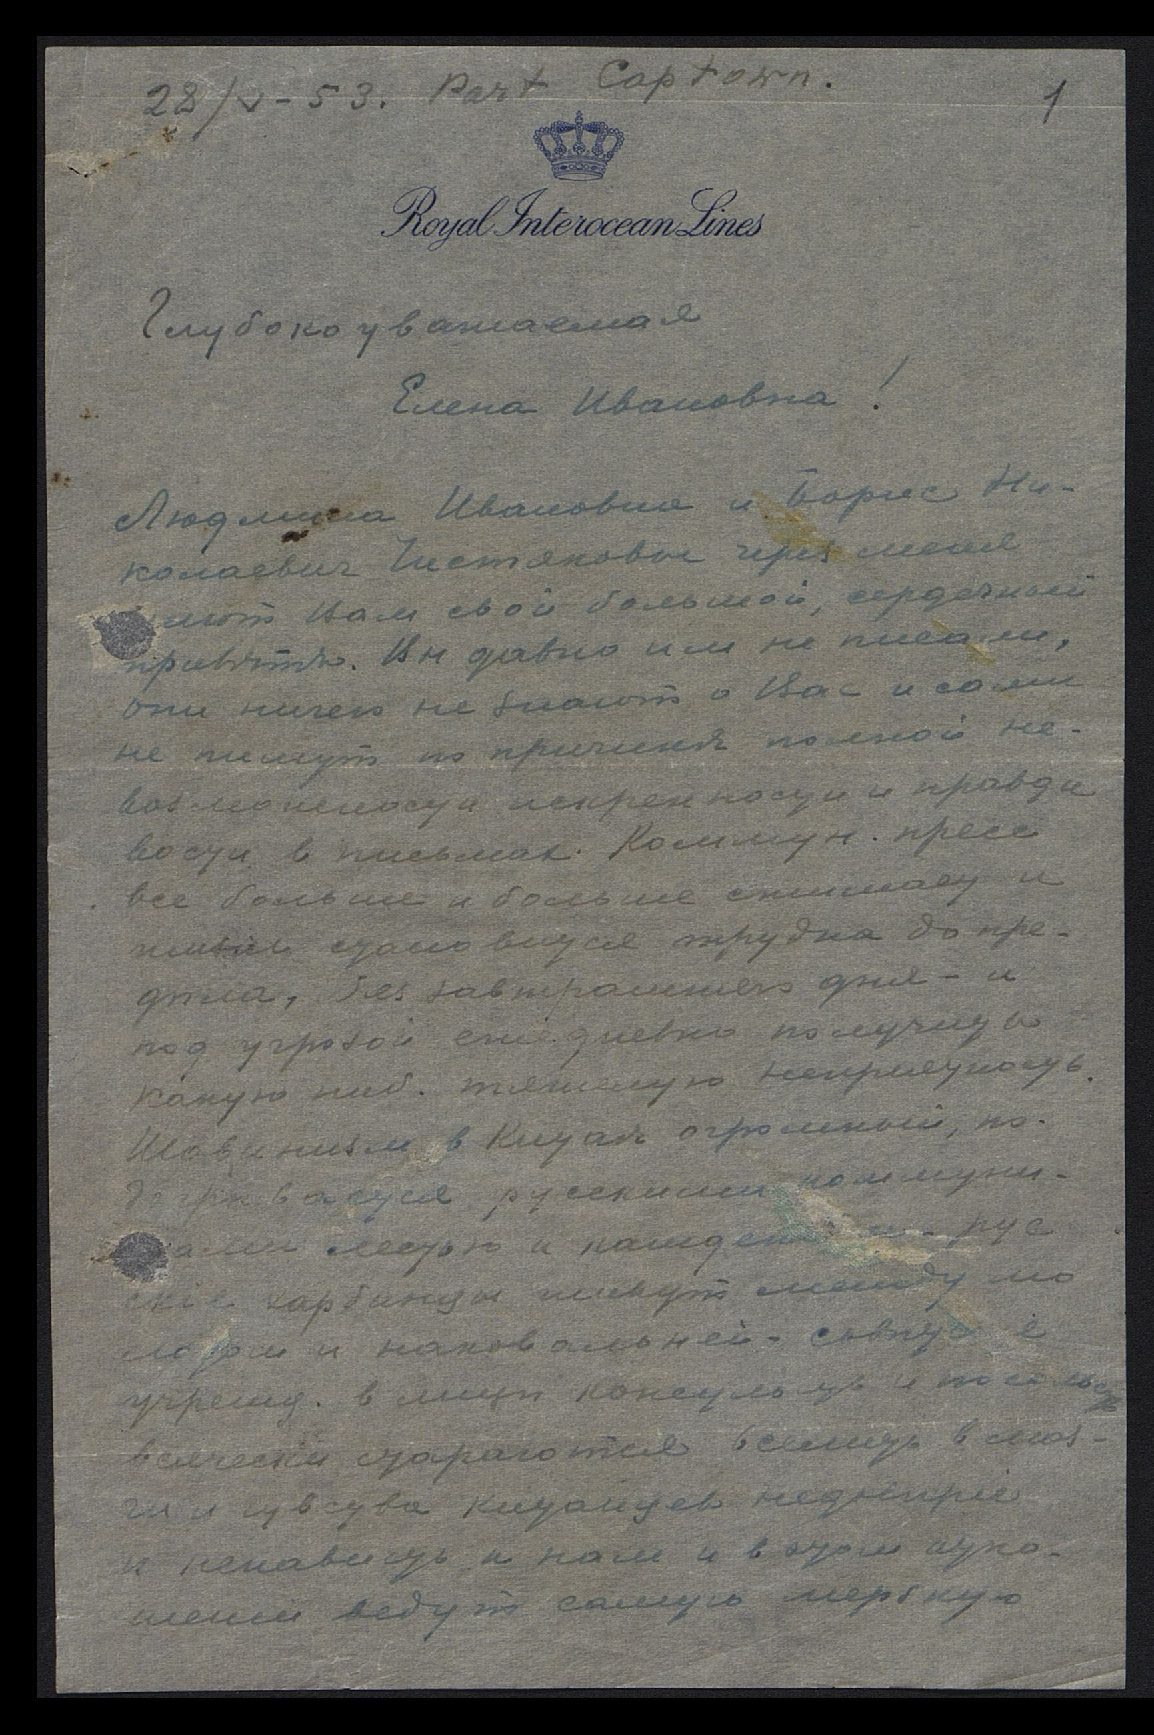 28/V-53. Port Captown.
1
Royal Interocean Lines
Глубокоуважаемая
Елена Ивановна!
Людмила Ивановна и Борис Ни-
колаевич Чистяковы через меня
шлют Вам свой большой, сердечный
привѣтъ. Вы давно им не писали,
они ничего не знают о Вас и сами
не пишут по причинѣ полной не-
возможности искренности и правди
вости в письмах. Коммун. пресс
все больше и больше сжимает и
жизнь становится трудна до пре-
дѣла, без завтрашнего дня - и
под угрозой ежедневно получить
какую ниб. тяжелую неприятность.
Шовинизм в Китаѣ огромный, по.
русскими коммуни-
лестью и рус
скіе харбинцы живут между мо
лотом и наковальней -
учрежд. в лицѣ консульств и посольств
всячески стараются вселить в моз-
ги и чувства китайцев недовѣріе
и ненависть к нам и в этом отно-
шении ведут самую мерзкую